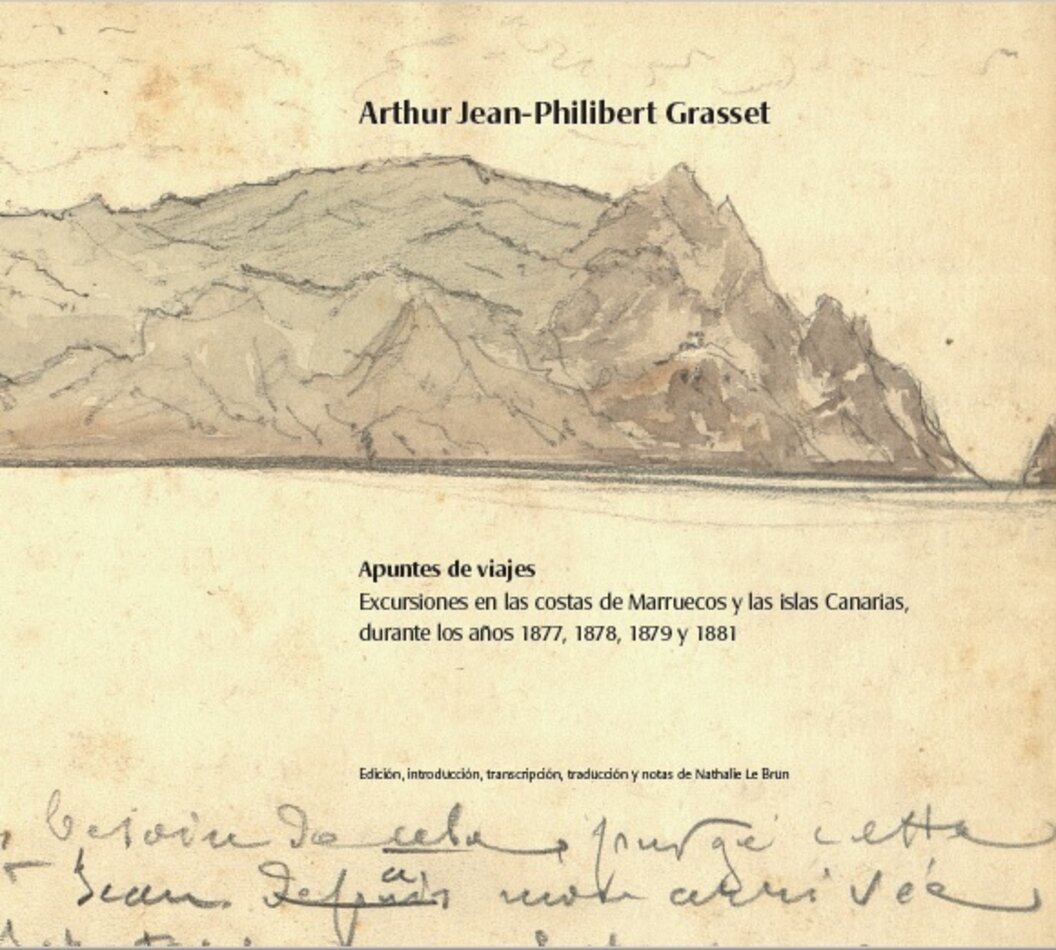 Arthur Jean-Philibert Grasset
Apuntes de viajes
Excursiones en las costas de Marruecos y las islas Canarias,
durante los años 1877, 1878, 1879 y 1881
Edición, introducción, transcripción, traducción y notas de Nathalie Le Brun
besoin de cela, purgé cette
Jean. Depuis mon arrivée